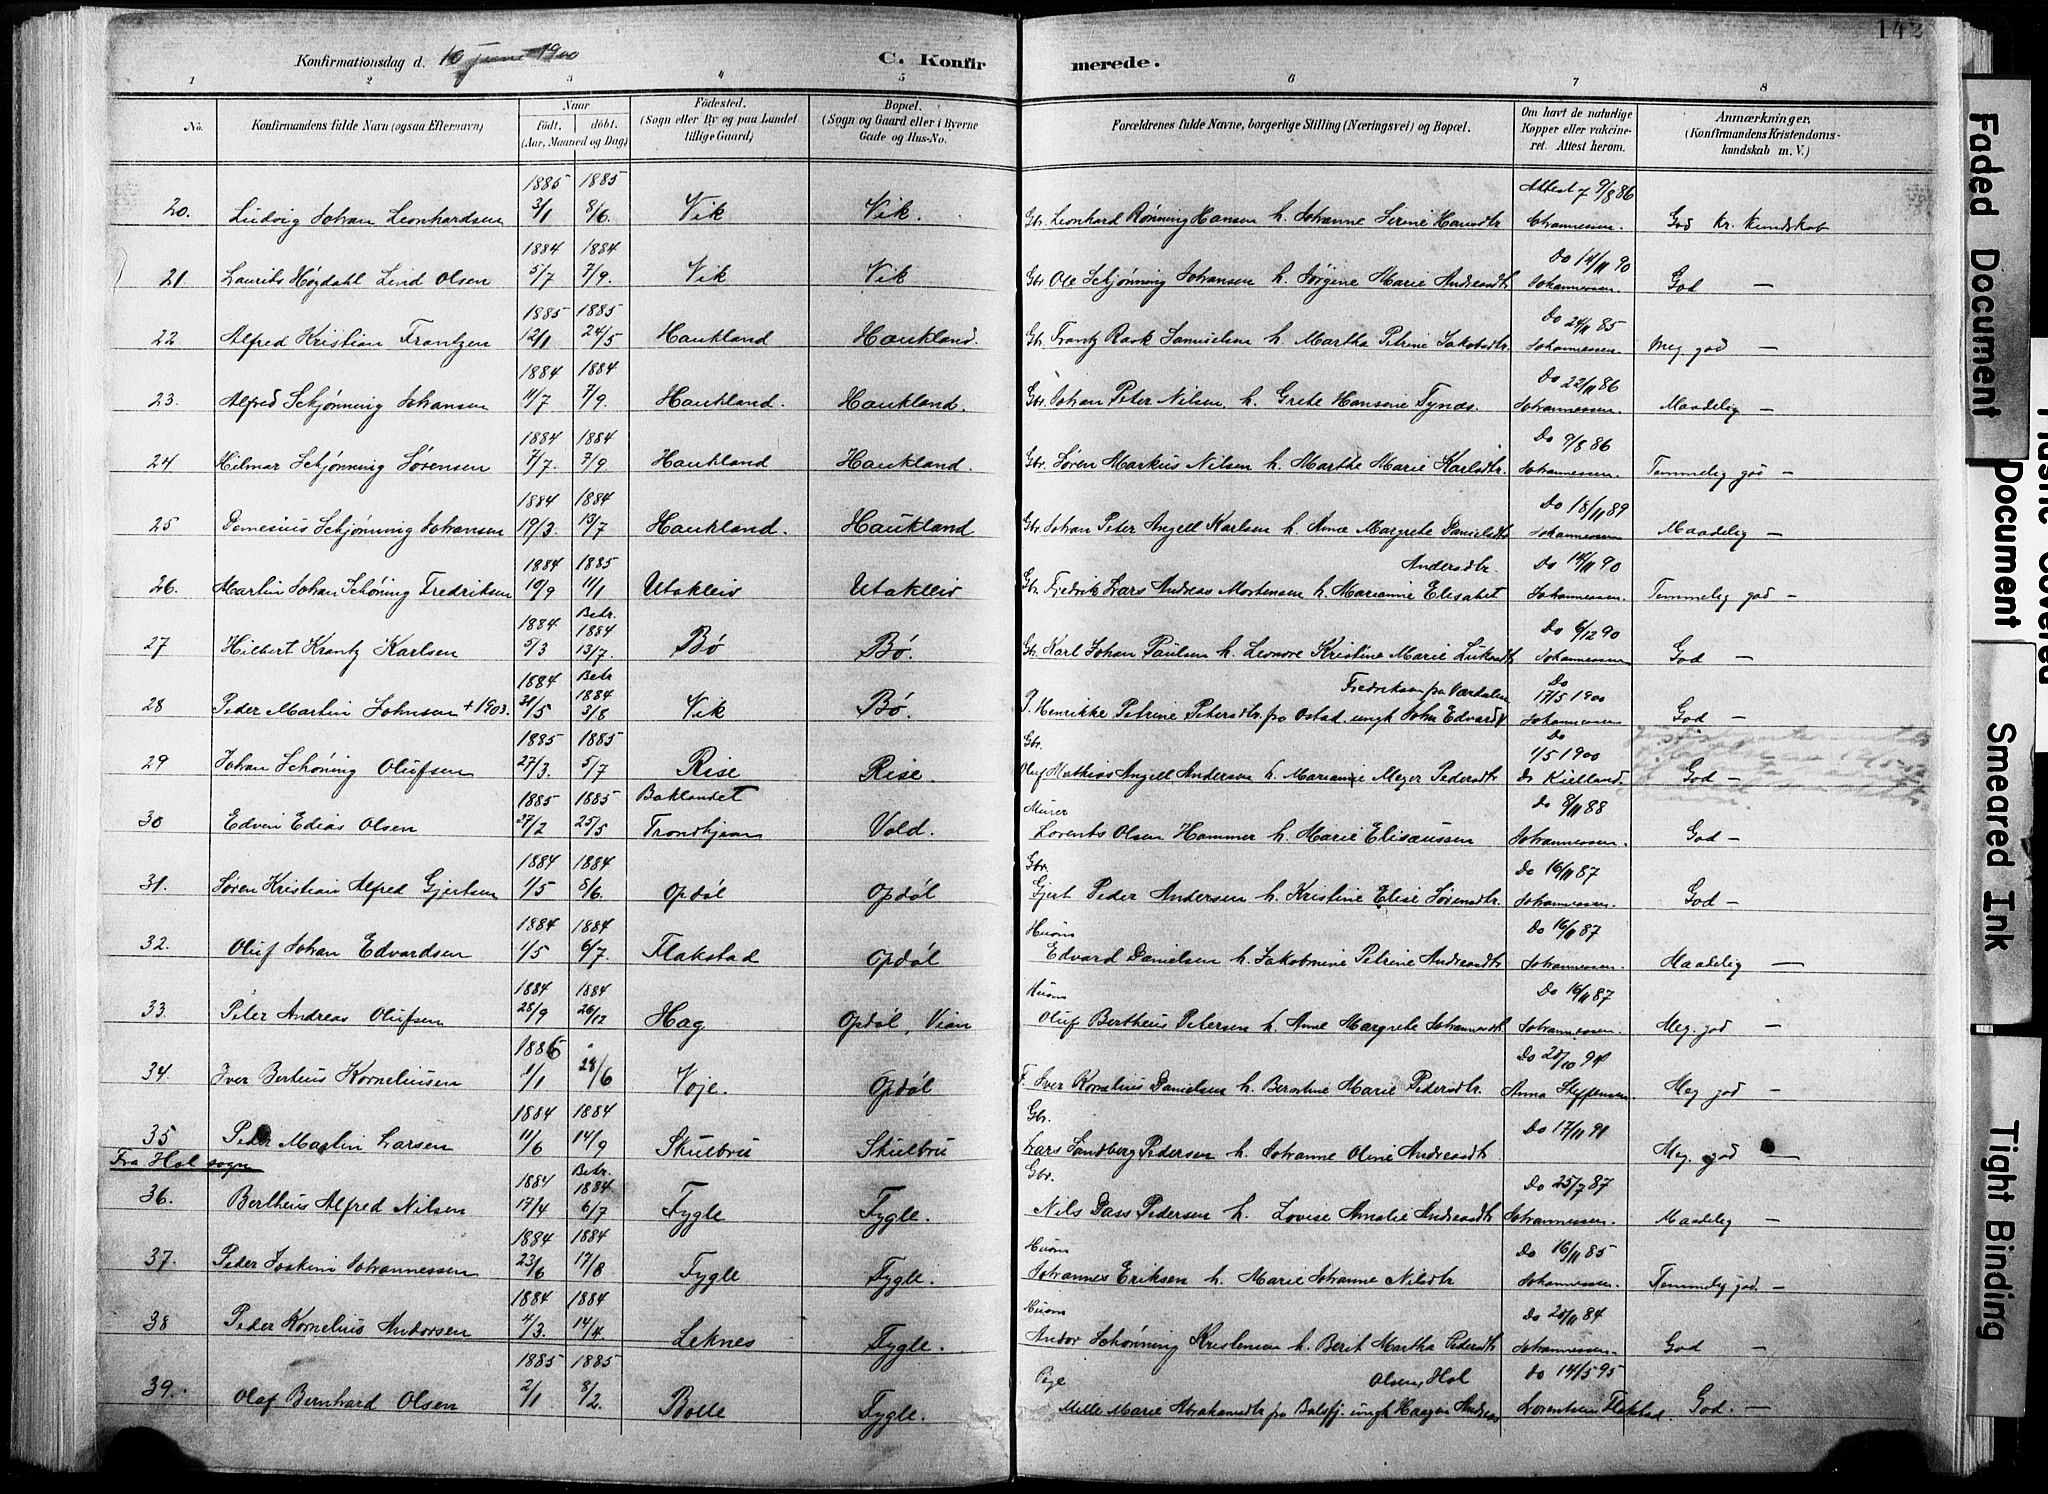 142
Konfirmationsdag d. 10 juni 1900
C. Konfirmerede.
1 2 3 4 5 6 7 8
No.
Konfirmandens fulde Navn (ogsaa Efternavn)
Naar
født. døbt.
(Aar, Maaned og Dag)
Fødested.
(Sogn eller By og paa Landet tillige Gaard)
Bopæl.
(Sogn og Gaard eller i Byerne Gade og Hus-No.
Forældrenes fulde Navne, borgerlige Stilling (Næringsvei) og Bopæl.
Om havt de naturlige Kopper eller vaccineret. Attest herom.
Anmærkninger.
(Konfirmandens Kristendomskundskab m. V.)
20. Ludvig Johan Leonhardsen 1885 3/1 1885 8/6. Vik Vik. Gbr. Leonhard Rønning Hansen h. Johanne Serine Hansdtr. Attest 9/8 86 Johannessen. God Kr. Kundskab
21. Laurits Høgdahl Lind Olsen 1884 5/7 1884 7/9. Vik Vik Gbr Ole Schjønning Johansen h. Jørgine Marie Andreasdtr Do 14/11 90 Johannessen God —
22 Alfred Kristian Frantzen 1885 12/1 1885 24/5 Haukland Haukland. Gb. Frantz Rask Samuelsen h. Martha Petrine Jakobsdtr. Do 24/11 85 Johannessen. Meg god —
23. Alfred Schjønning Johansen 1884 11/7 1884 7/9. Haukland. Haukland. Gbr. Johan Peter Nilsen, h. Grete Hansine Tynds. Do 22/11 86 Johannessen. Maadelig —
24 Hilmar Schjønning Sørensen 1884 7/7. 1884 7/9 Haukland Haukland. Gbr. Søren Markus Nilsen h. Marthe Marie Karlsdtr. Do 9/8 86 Johannessen. Temmelig god —
25 Demesius Schjønning Johansen 1884 19/3. 1884 13/7 Haukland. Haukland Gbr. Johan Peter Angell Karlsen h. Anne Margrete Danielsdtr Do 18/11 89 Johannessen Maadelig —
26. Martin Johan Schøning Fredriksen 1884 10/9 1885 11/1 Utakleiv Utakleiv Gbr. Fredrik Lars Andreas Mortensen h. Marianne Elisabet Andersdtr. Do 14/11 90 Johannessen. Temmelig god —
27 Hilbert Krantz Karlsen 1884 5/3 Bekr. 1884 13/7. Bø Bø. Gbr. Karl Johan Paulsen h. Leonore Kristine Marie Lukasdtr Do 6/12 90 Johannessen God —
28 Peder Martin Johnsen + 1903. 1884 31/5 Bekr 1884 3/8 Vik Bø. P. Henrikke Petrine Petersdtr. fra Ostad. ungk John Edvard Fredriksen fra Værdalen Do 17/5 1900 Johannessen God —
29 Johan Schøning Olufsen 1885 27/3. 1885 5/7 Rise Rise. Gbr. Oluf Mathias Angell Andersen h. Marianne Meyer Pedersdtr Do 1/5 1900 dr Kielland. God —
30 Edvin Edias Olsen 1885 27/2 1885 25/5 Baklandet Trondhjem Vold. Murer Lorents Olsen Hammer h. Marie Elisæussen Do 8/11 88 Johannessen. God —
31. Søren Kristian Alfred Gjertsen 1884 1/5 1884 8/6. Opdøl Opdøl Gbr. Gjert Peder Andersen h. Kristine Elise Sørensdtr. Do 16/11 87 Johannessen. God —
32. Oluf Johan Edvardsen 1884 1/5 1884 6/7. Flakstad Opdøl Husm Edvard Danielsen h. Jakobmine Petrine Andreasdtr Do 16/11 87 Johannessen. Maadelig —
33. Peter Andreas Olufsen 1884 28/9 1884 26/12 Hag Opdøl, Vian Husm Oluf Bertheus Petersen h. Anne Margrete Johannesdtr Do 16/11 87 Johannessen. Meg. god —
34. Iver Berteus Korneliussen 1886 1/1 28/6 Voje. Opdøl F. Iver Kornelius Danielsen h. Berntine Marie Pedersdtr. Do 20/10 94 Anna Steffensen Meg god —
35 Peder Martin Larsen 1884 11/6 1884 14/9 Skulbru Skulbru Gbr. Lars Sandberg Pedersen h. Johanne Oline Andreasdtr Do 17/11 91 Meg. god —
Fra Hol sogn
36. Bertheus Alfred Nilsen 1884 17/4 Bekr. 1884 6/7 Fygle Fygle. Gbr. Nils Dass Pedersen h. Lovise Amalie Andreasdtr Do 25/7 87 Johannessen. Maadelig —
37. Peder Joakim Johannessen 1884 23/6 1884 17/8 Fygle Fygle. Husm Johannes Eriksen h. Marie Johanne Nilsdtr Do 16/11 85 Johannessen. Temmelig god. —
38 Peder Kornelius Andorsen 1884 4/3. 1884 14/4. Leknes Fygle. Husm Andor Schønning Kristensen h. Berit Martha Pedersdtr Do 20/11 84 Johannessen. God —
39. Olaf Bernhard Olsen 1885 2/1 1885 8/2. Bolle Fygle. Pige Mille Marie Abrahamsdtr fra Balsfj. ungk Haagen Andreas Olsen, Hol Do 14/5 95 Lorentsen Flakstad. God. —
Faded Document
Document
Smeared Ink
Tight Binding